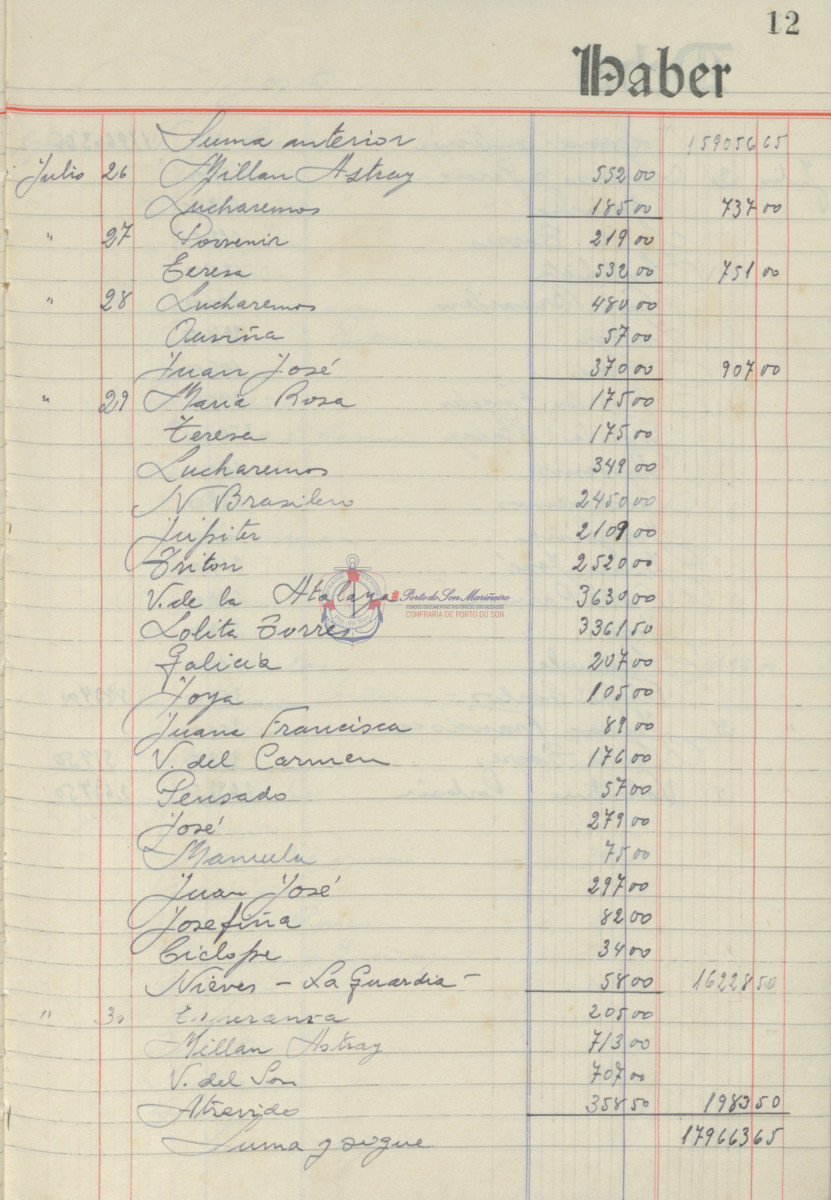 12
Haber
Suma anterior 159056 65
Julio 26 Millan Astray 552 00
Lucharemos 185 00 737 00
" 27 Porvenir 219 00
Teresa 532 00 751 00
" 28 Lucharemos 480 00
Ausiña 57 00
Juan José 370 00 907 00
" 29 Maria Rosa 175 00
Teresa 175 00
Lucharemos 349 00
N Brasilero 2450 00
Jupiter 2109 00
Triton 2520 00
V. de la Atalaya 3630 00
Porto do Son Mariñeiro
FONDOS DOCUMENTAIS HISTÓRICOS DIXITALIZADOS
CONFRARÍA DE PORTO DO SON
Lolita Torres 3361 50
Galicia 207 00
Joya 105 00
Juana Francisca 89 00
V. del Carmen 176 00
Pensado 57 00
José 279 00
Manuela 75 00
Juan José 297 00
Josefiña 82 00
Ciclope 34 00
Nieves - La Guardia - 58 00 16228 50
" 30 Esperanza 205 00
Millan Astray 713 00
V. del Son 707 00
Atrevido 358 50 1983 50
Suma y sigue 179663 65